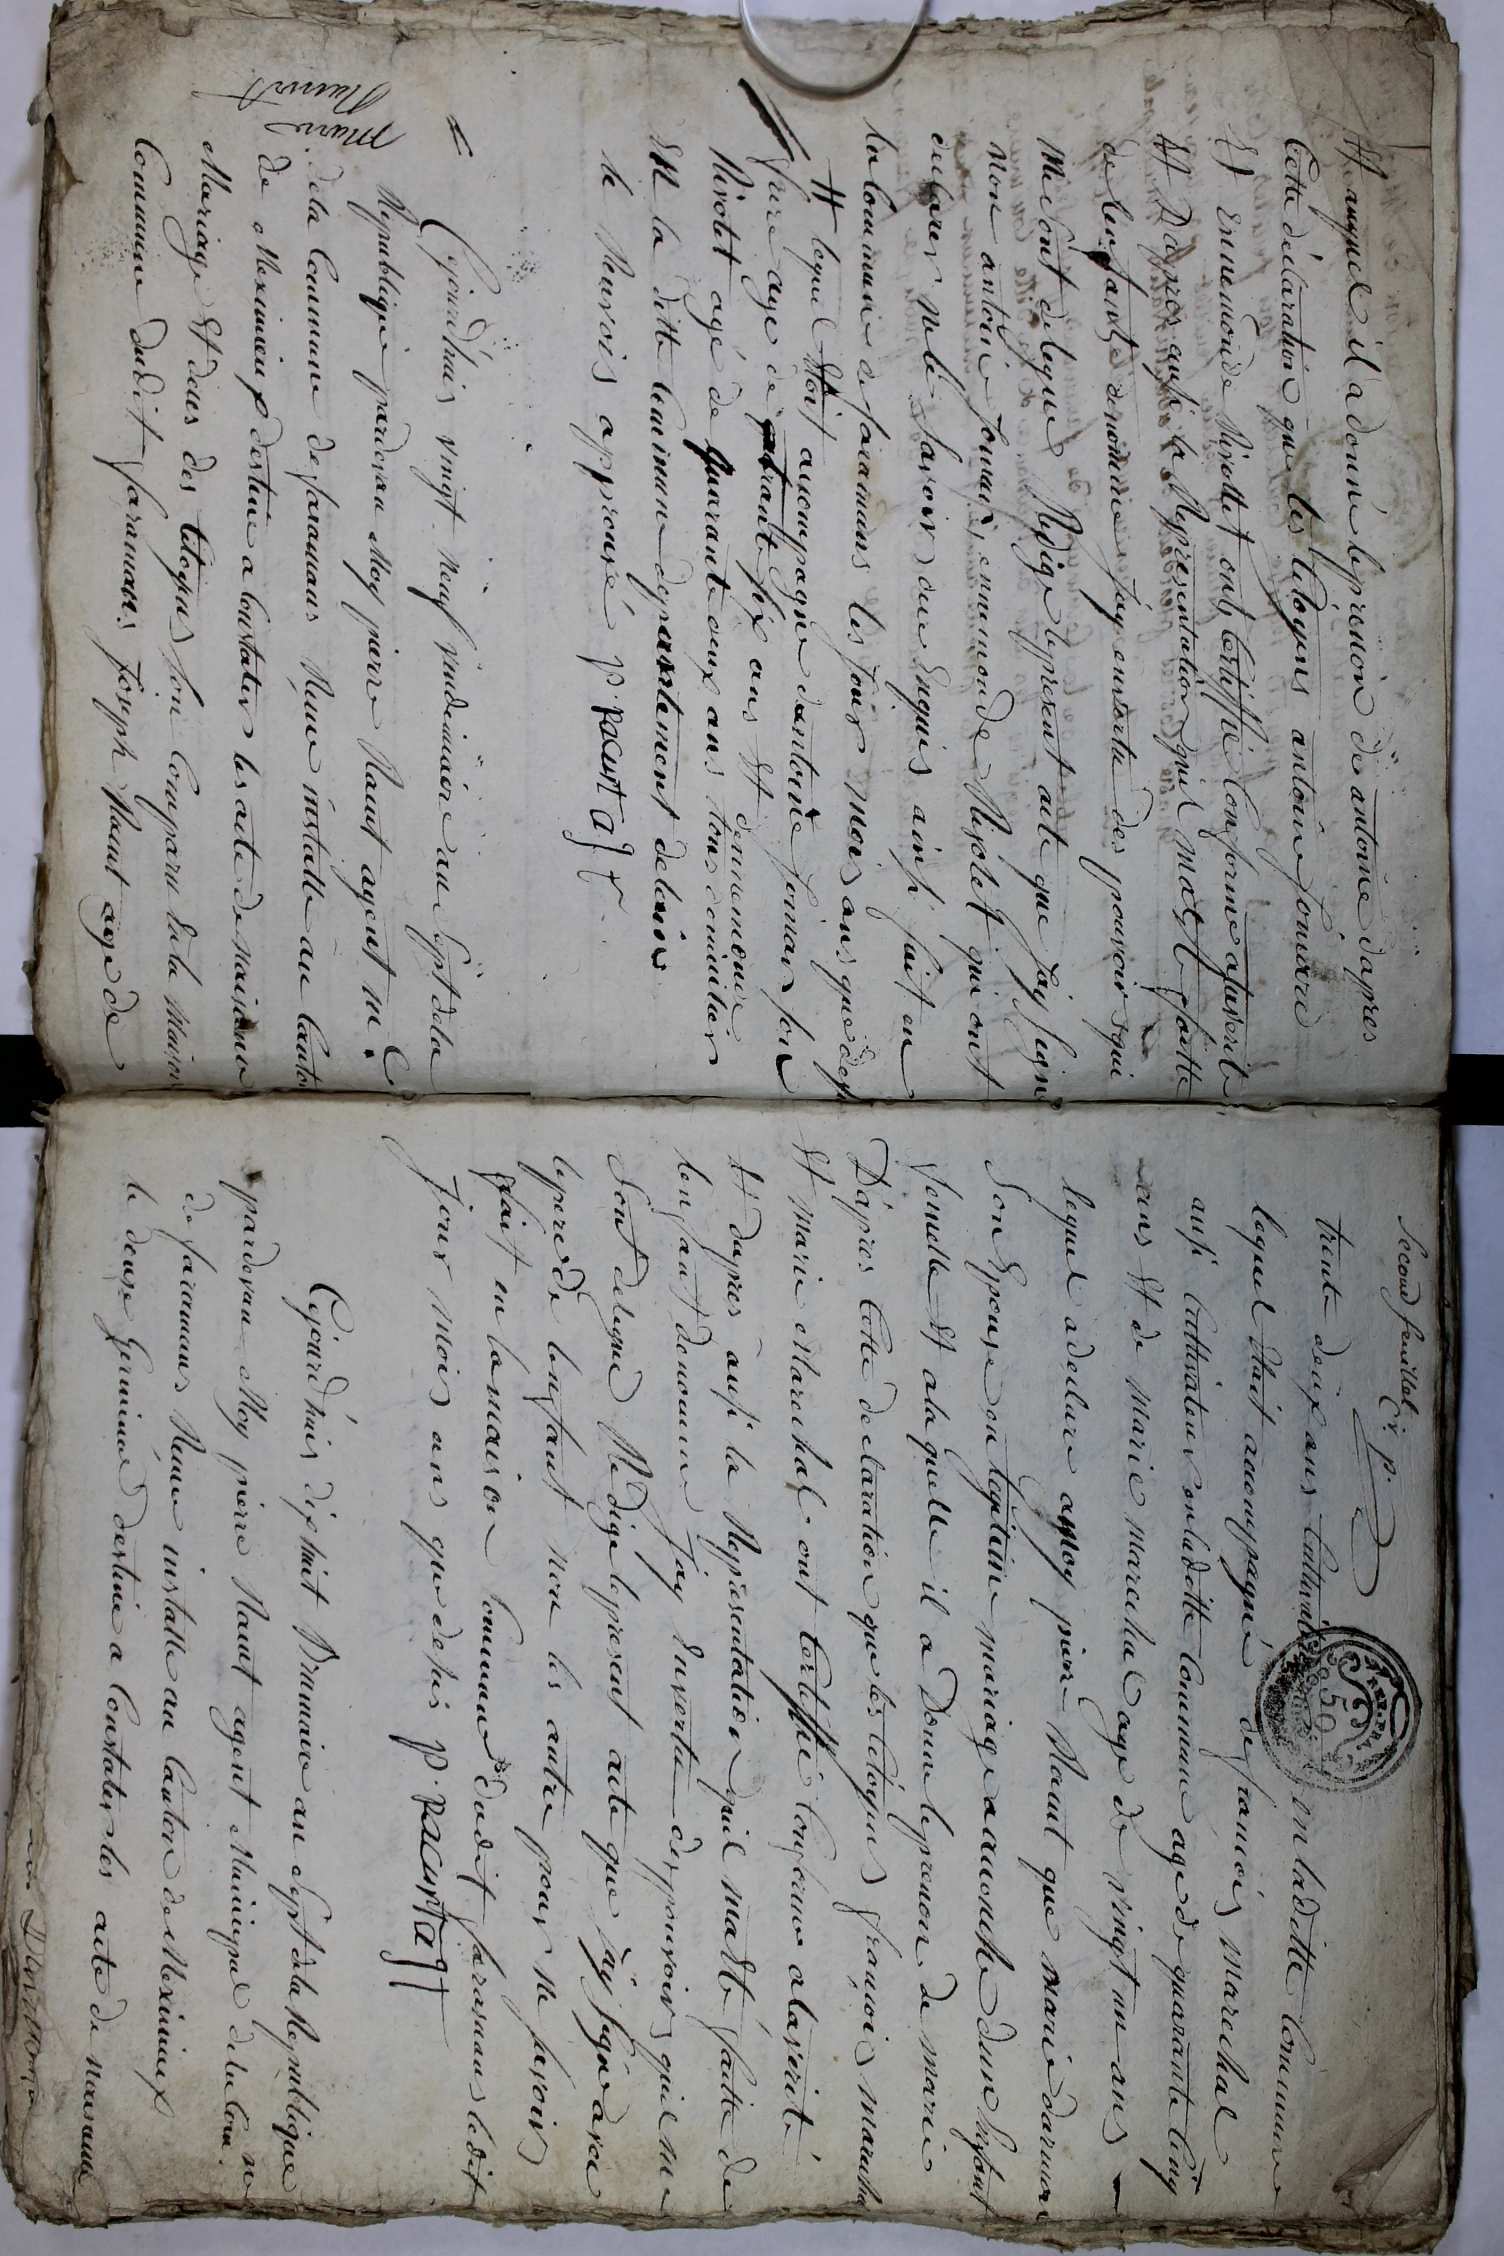 Et auquel il a donné le prenoin de antoine dapres
Cette déclaration que les Citoyens antoine Joinard
Et Ennemonde Rivollet onts certiffié Conforme a laverite
Et Dapres aussi la Representation quil mat Et faitte
de lenfants denommé Jay envertu des pouvoir qui
me sont delegue Redige le present acte que Jay signe
non antoine Joinard, ennemonde Rivolet qui ont
declarer ne le savoir de ce Enquis ainsi fait en
la Commune de faramans les Jour mois ans que dessus
# lequel Etoit accompagné dantoine Joinar son
frere age de quarante six ans Et dennemonde
Rivolet agé de quarante deux ans tous domicilier
En la ditte Commune departement de lain
le Renvois approuvé p. Raut agt
Cejourdhuis vingt neuf vendemiaire an Sept dela
Republique pardevan Moy pierre Raut agent m
dela Commune de faramans Reuve installe au Canton
de Meximieux destine a Constater les acte de naissance
Mariage Et deces des Citoyens soin Comparu En la Maison
Commune dudit faramans Joseph Raut age de
Marie
Raut
Second feuillet
C. p.
trente deux ans Cultivateur En laditte Commune
lequel Etait accompagné de francois Marechal
aussi Cultivateur en laditte Commune age de quarante Cinq
ans Et de Marie marechal age de vingt un ans
lequel a declare a moy pierre Raut que marie
Son Epouse en legitime mariage a accouche dune Enfant
femelle Et a laquelle il a Donne le prenom de marie
Dapres Cette declaration que les Citoyens francois Marechal
Et marie Marechal ont Certiffié Conforme a laverité
Et dapres aussi la Representation quil mat Et faitte de
lenfant denomme Jay Envertu des pouvoir qui me
Sont delegué Redige le present acte que Jay signé avec
le pere de lenfant non les autre pour ne savoir
fait en la maison Commune dudit faramans ledit
Jour mois ans que dessus p. Raut agt
Cejourdhuis dix huit Brumaire an Sept dela Republique
pardevan Moy pierre Raut agent Municipal dela Com
de faramans Reuve installe au Canton de Meximieux
le deuze germinal destine a Constater les acte de naissance